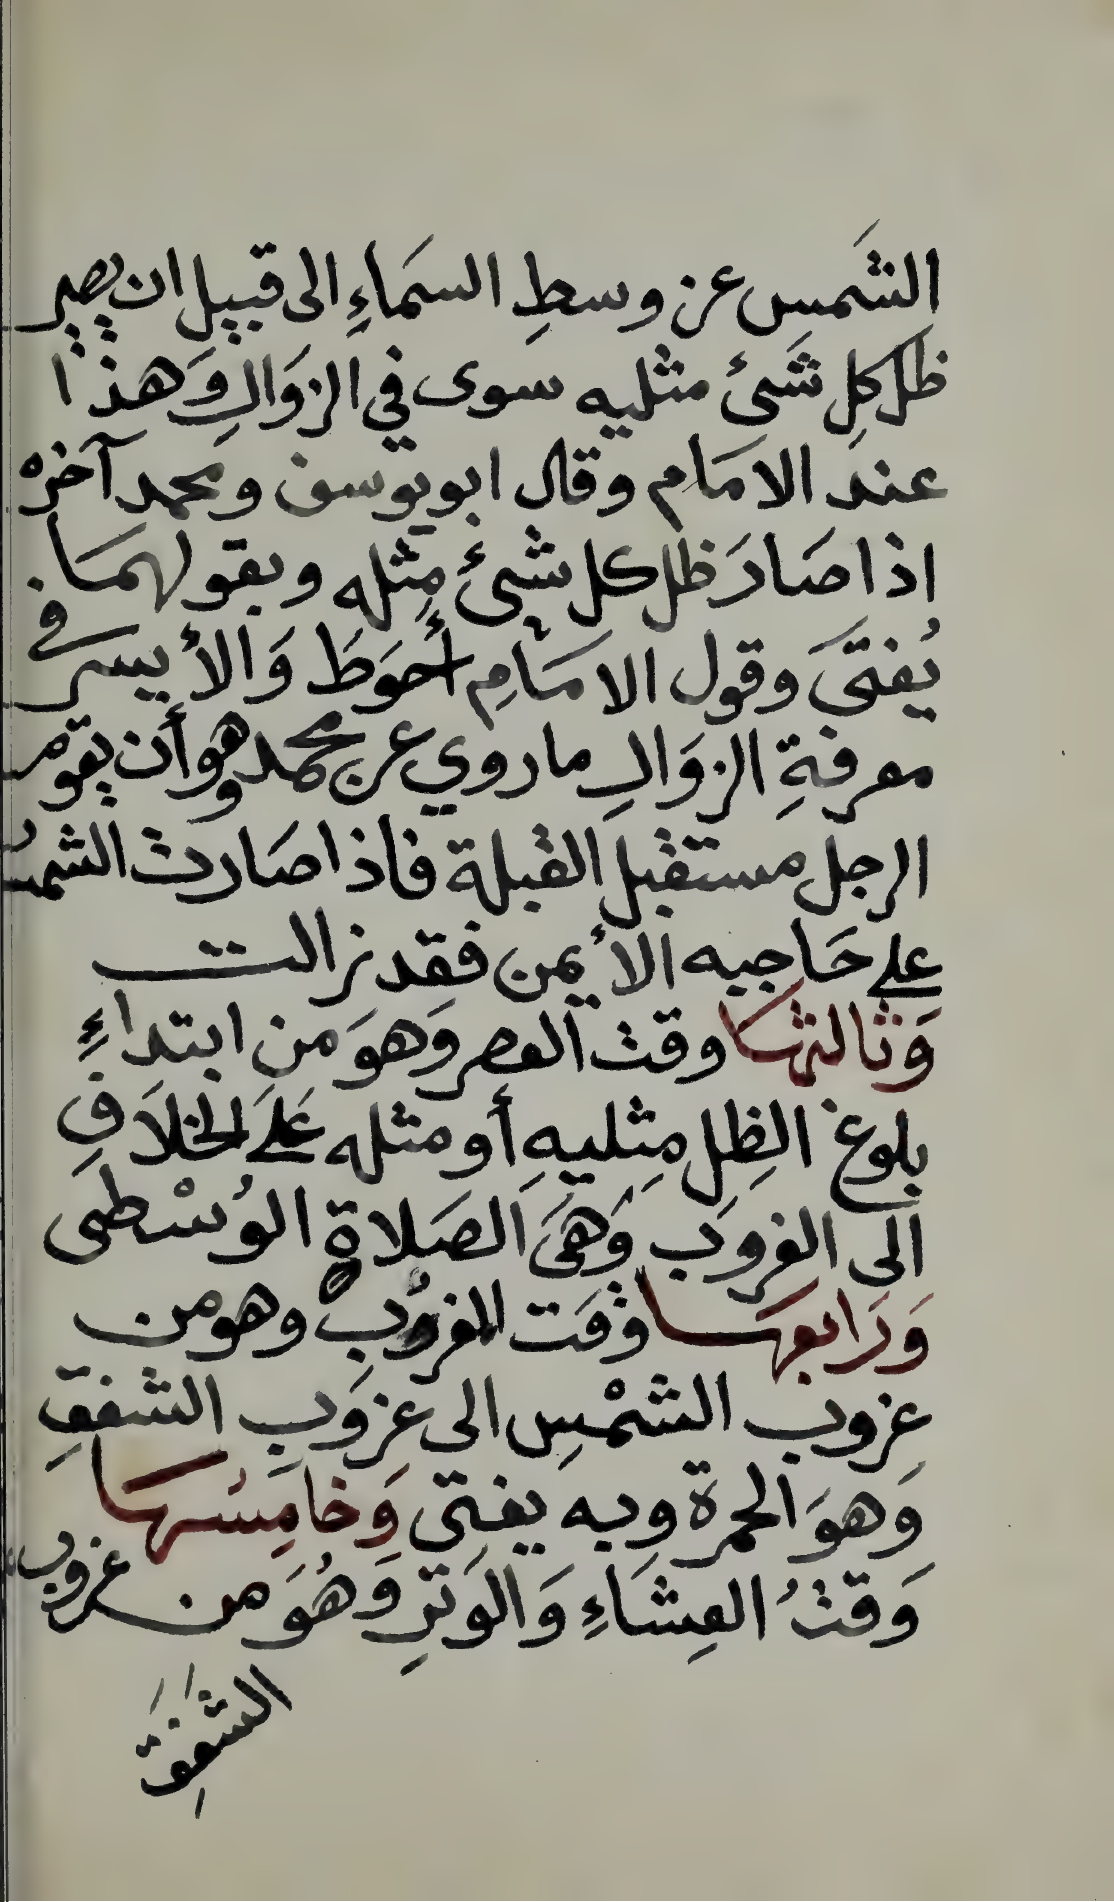 الشَمس عن وسطِ السمَاءِ الى قبيل ان يصير
ظل كلِ شَىئ مثليه سوى في الزوَالِ وَهذا
عندَ الامَام وقال ابو يوسف ومحمد آخره
اذا صَارَ ظل كل شىئ مِثله وبقولهمَا
يُفتىَ وقول الامَامِ أحوَطَ وَالأ يسر في
معرفةِ الزوَالِ ما روي عن محمد وهو أن يقوم
الرجل مستقبل القبلة فاذا صَارت الشمس
على حَاجبه الأيمن فقد زالت
وَثالثهَا وقت العصر وهوَ من ابتداءِ
بلوغ الظِل مِثليهِ أو مثله عَلىَ الخلاَفِ
الى الغروب وَهىَ الصَلاة الوُسْطى
وَرَابعهَا وقَت المغرُب وهو من
غروب الشمْسِ الى غروَبِ الشفقِ
وَهوَ الحمرة وبه يفتى وَخامِسُهَا
وَقتُ العِشَاءِ وَالوَترِ وَهُوَ من غروب
الشفَقِ